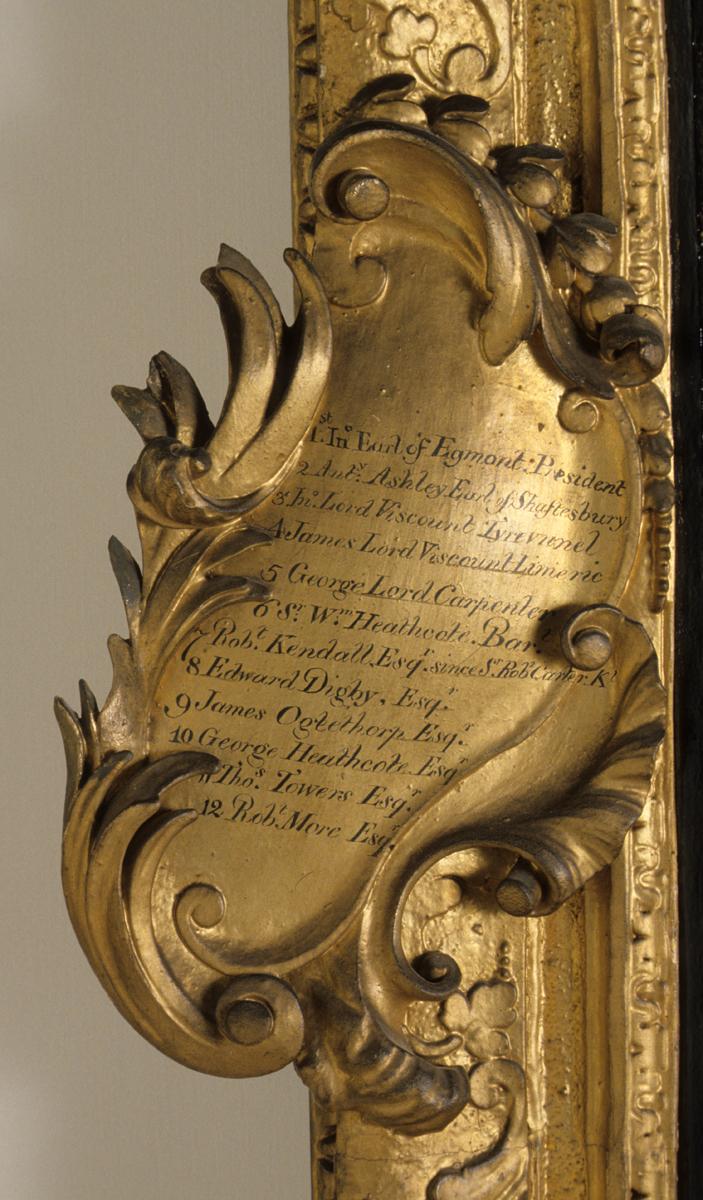 1.st Jn.o Earl of Egmont. President
2 Ant.y Ashley Earl of Shaftesbury
3 Jn.o Lord Viscount Tyrconnel
4 James Lord Viscount Limeric
5 George Lord Carpenter
6 S.r W.m Heathcote. Bar.t
7 Rob.t Kendall Esq.r since S.r Rob.t Carter K.t
8 Edward Digby, Esq.r
9 James Ogtethorp Esq.r
10 George Heathcote Esq.r
11 Tho.s Towers Esq.r
12 Rob.t More Esq.r